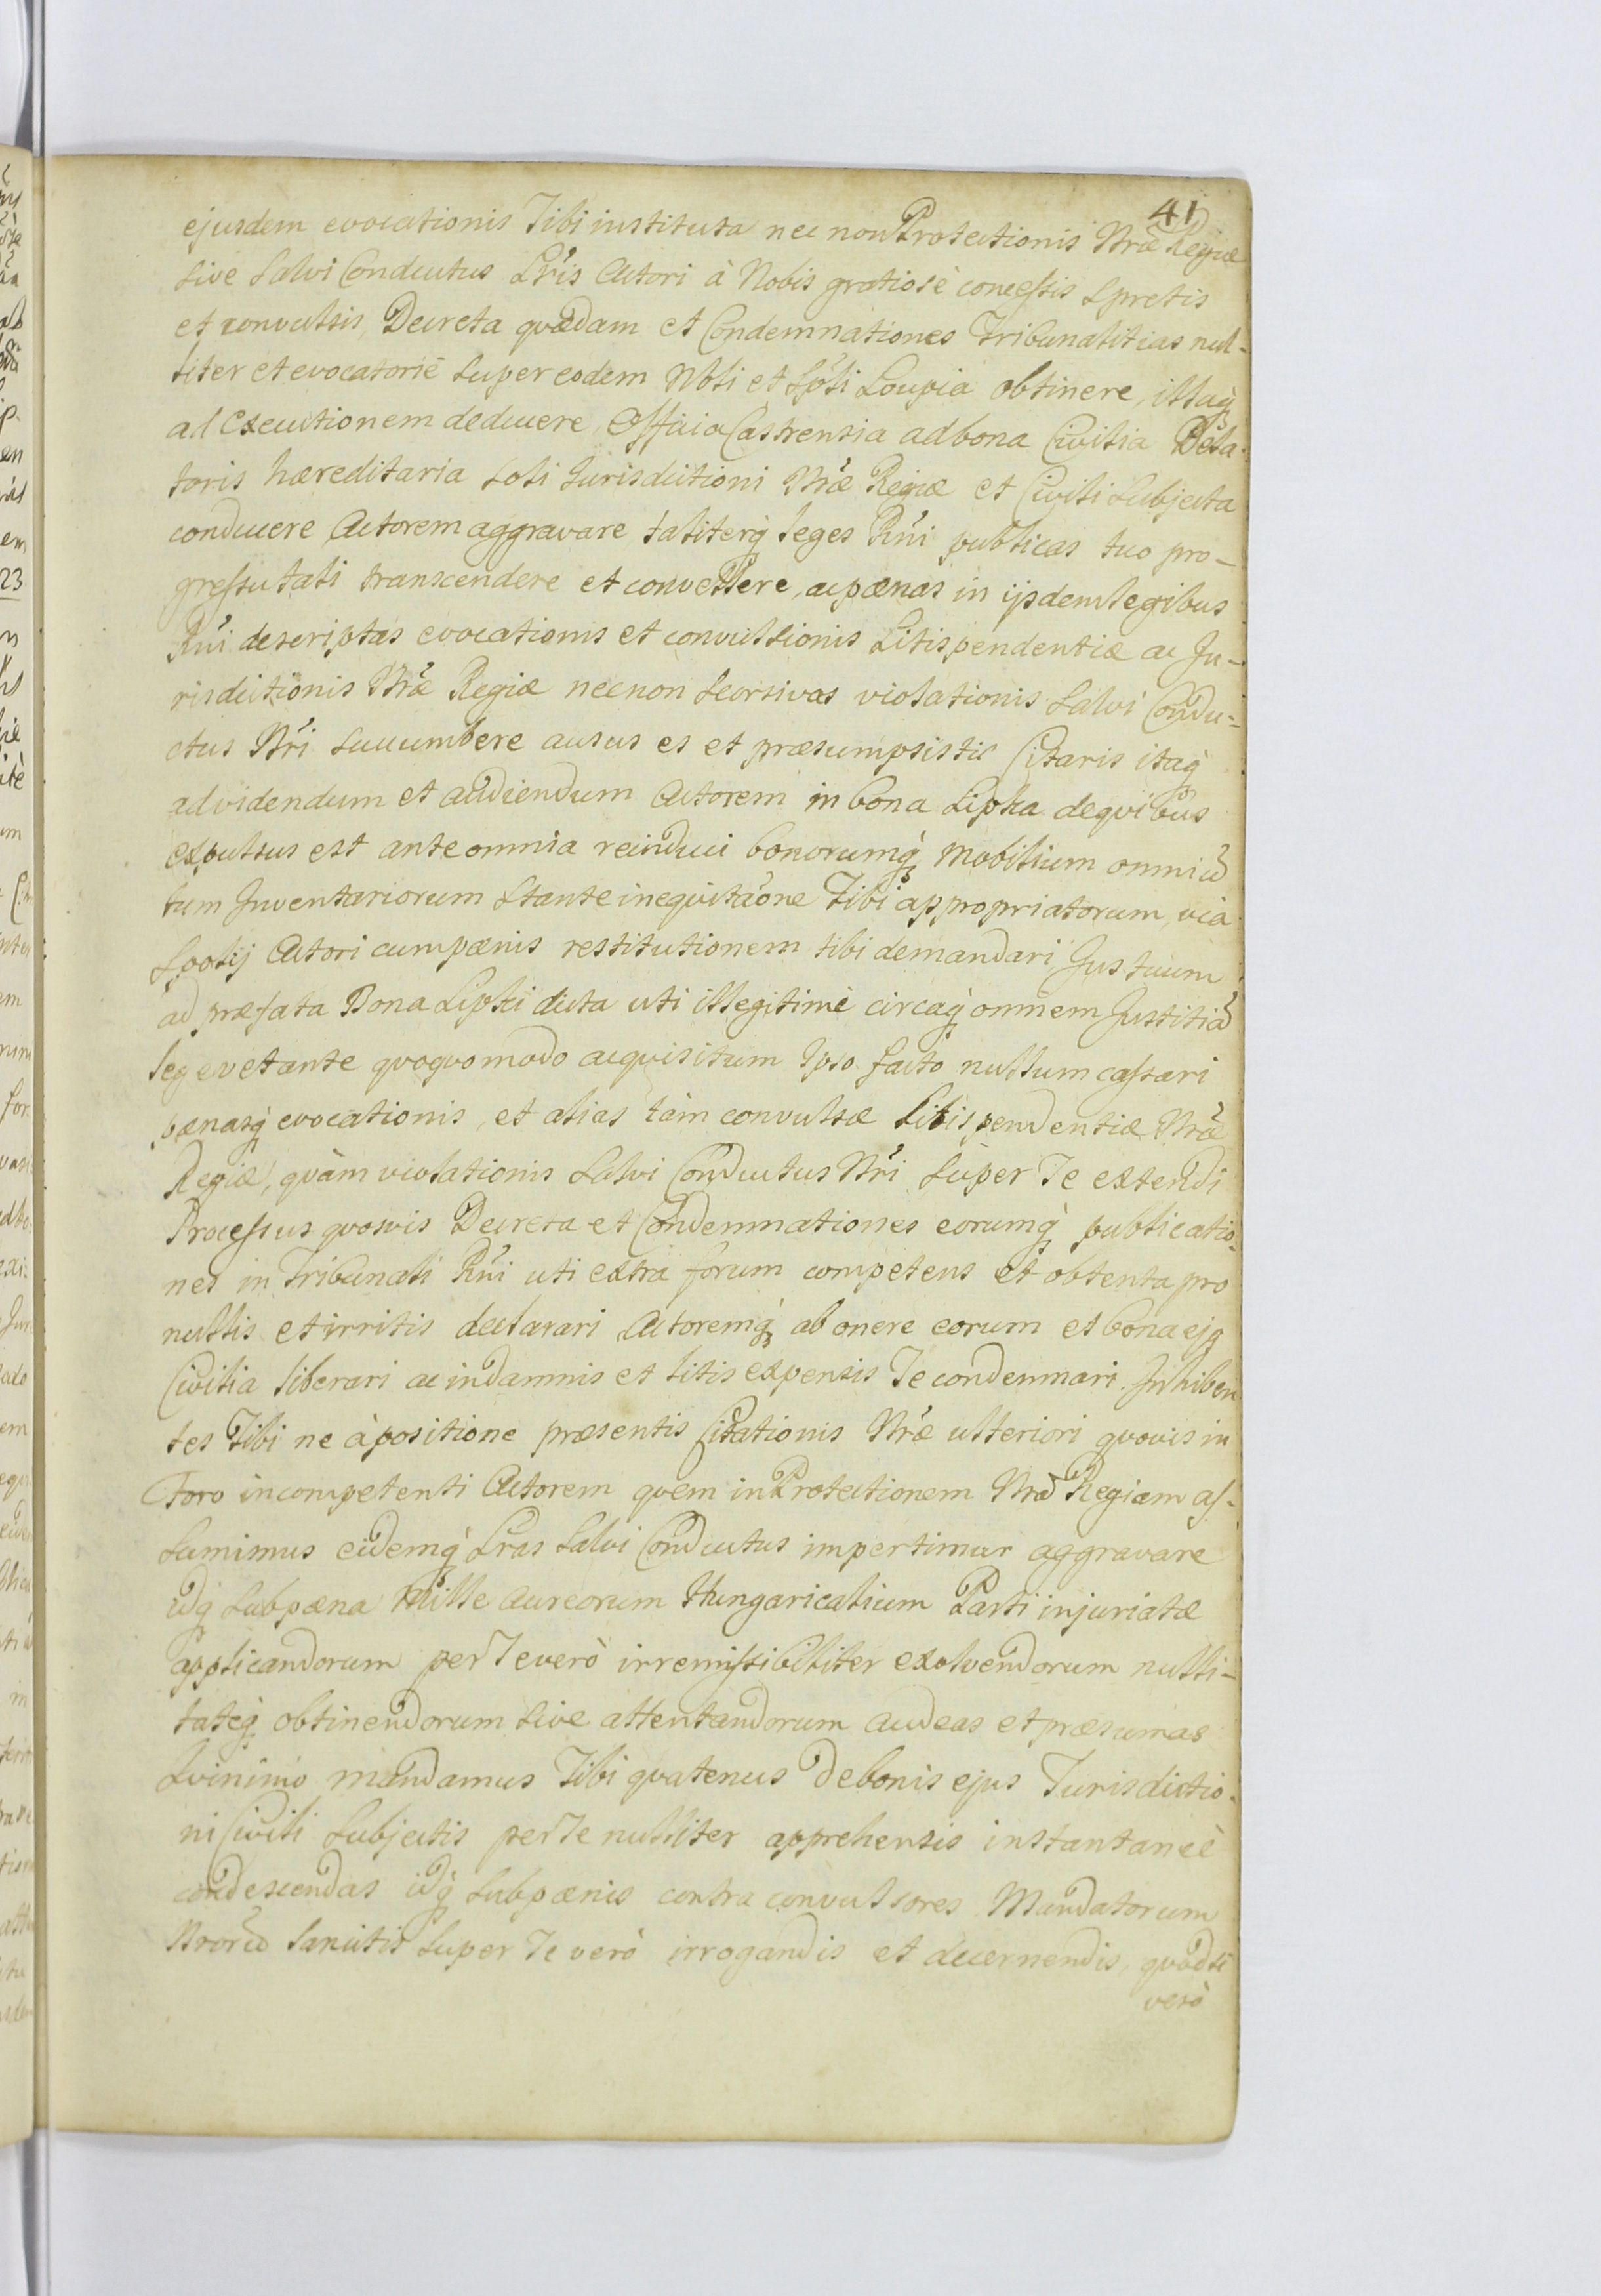 41
ejusdem evocationis Tibi instituta nec non Protectionis Nrae Regiae
sive Salvi Conductus Lris Actori à Nobis gratiosè concessis spretis
et convulsis, Decreta quaedam et Condemnationes Tribunalitias nul-
liter et evocatoriè super eodem Nbli et Loupia obtinere, illaq
ad Executionem deducere Officia Castrensia ad bona Civilia Dela-
toris haereditaria soli Jurisdictioni Nrae Regiae et Civili Subjecta
conducere Actorem aggravare taliterq leges Rni publicas tuo pro-
gressu tali transcendere et convellere, ac paenas in ijsdem legibus
Rni descriptas evocationis et convulsionis Litispendentiae ac Ju-
risdictionis Nrae Regiae nec non seorsivas violationis Salvi Condu-
ctus Nri succumbere ausus es et praesumpsisti Citaris itaq
ad videndum et audiendum Actorem in bona Lipka de quibus
expulsus est ante omnia reinduci bonorumq Mobilium omniu
tum Inventariorum stante inequitaone Tibi appropriatorum, via
Spolij Actori cum paenis restitutionem tibi demandari Jus tuum
ad praefata Bona Lipki dicta uti illegitimè circaq omnem Justitia
lege vetante quoquo modo acquisitum Ipso facto nullum cassari
paenasq evocationis, et alias tàm convulsae litispendentiae Nrae
Regiae, quàm violationis Salvi Conductus Nri super Te extendi
Processus quosvis Decreta et Condemnationes eorumq publicatio-
nes in Tribunali Rni uti extra forum competens et obtenta pro
nullis et irritis declarari Actoremq ab onere eorum et bona ejq
Civilia liberari ac in damnis et litis expensis Te condemnari. Inhiben
tes Tibi ne à positione praesentis Citationis Nrae ulteriori quovis in
Foro incompetenti Actorem quem in Protectionem Nra Regiam as-
sumimus eidemq Lras Salvi Conductus impertimur aggravare
idq sub paena Mille Aureorum Hungaricalium Parti injuriatae
applicandorum per Te verò irremissibiliter exolvendorum nulli-
tateq obtinendorum sive attentandorum audeas et praesumas
Quinimo mandamus Tibi quatenus de bonis ejus Jurisdictio-
ni Civili Subjectis per Te nulliter apprehensis instantaneè
condescendas idq sub paenis contra convulsores Mandatorum
Nroru sancitis super Te verò irrogandis et decernendis, quod si
verò